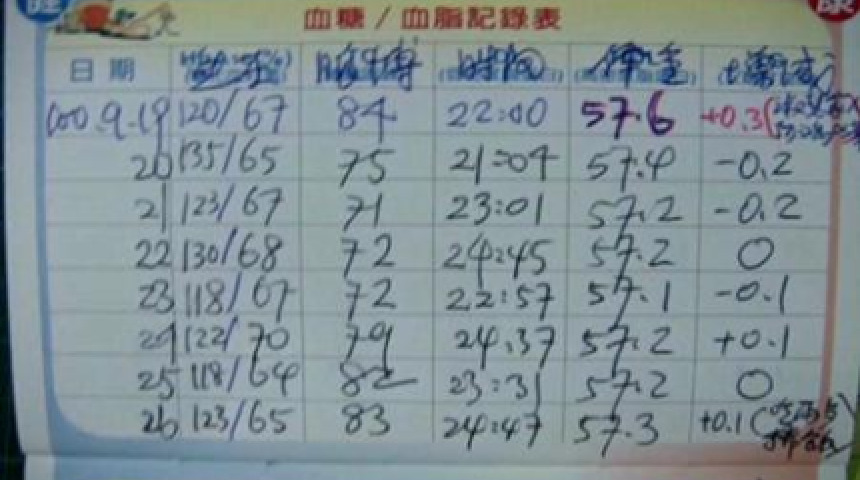 健 康
血糖/血脂記錄表
日期 脈博 時間 體重
100.9.19 120/67 84 22:00 57.6 +0.3(
20 135/65 75 21:04 57.4 -0.2
21 123/67 71 23:01 57.2 -0.2
22 130/68 72 24:45 57.2 0
23 118/67 72 22:57 57.1 -0.1
24 122/70 79 24:37 57.2 +0.1
25 118/64 82 23:31 57.2 0
26 123/65 83 24:47 57.3 +0.1(